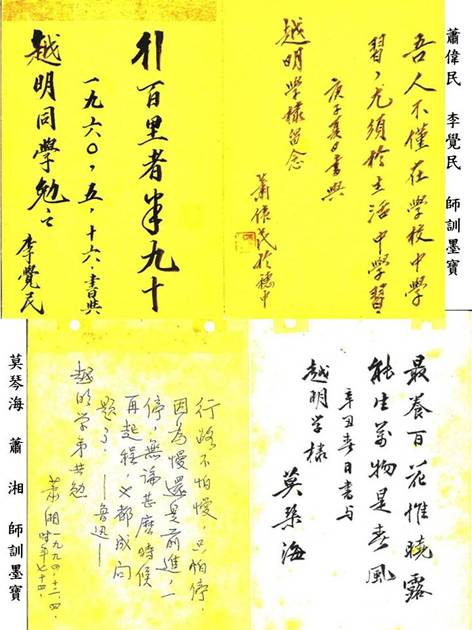 蕭偉民 李覺民 師訓墨寶
吾人不僅在學校中學
習,尤須於生活中學習。
庚子夏日書與
越明學棣留念
蕭偉民於穗中
行百里者半九十
一九六〇,五,十六,書與
越明同學勉之
李覺民
最養百花惟曉露
能生萬物是春風
辛丑春日書与
越明学棣
莫琴海
行路不怕慢,只怕停,
因為慢還是前進,一
停,無論甚麼時候
再起程,都成問
題了。——鲁迅——
越明学弟共勉
萧湘一九九四,十二,四,
时年七十四,
莫琴海 蕭湘 師訓墨寶